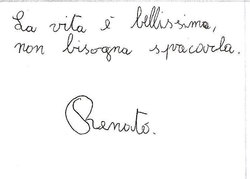 La vita è bellissima,
non bisogna sprecarla.
Renato.